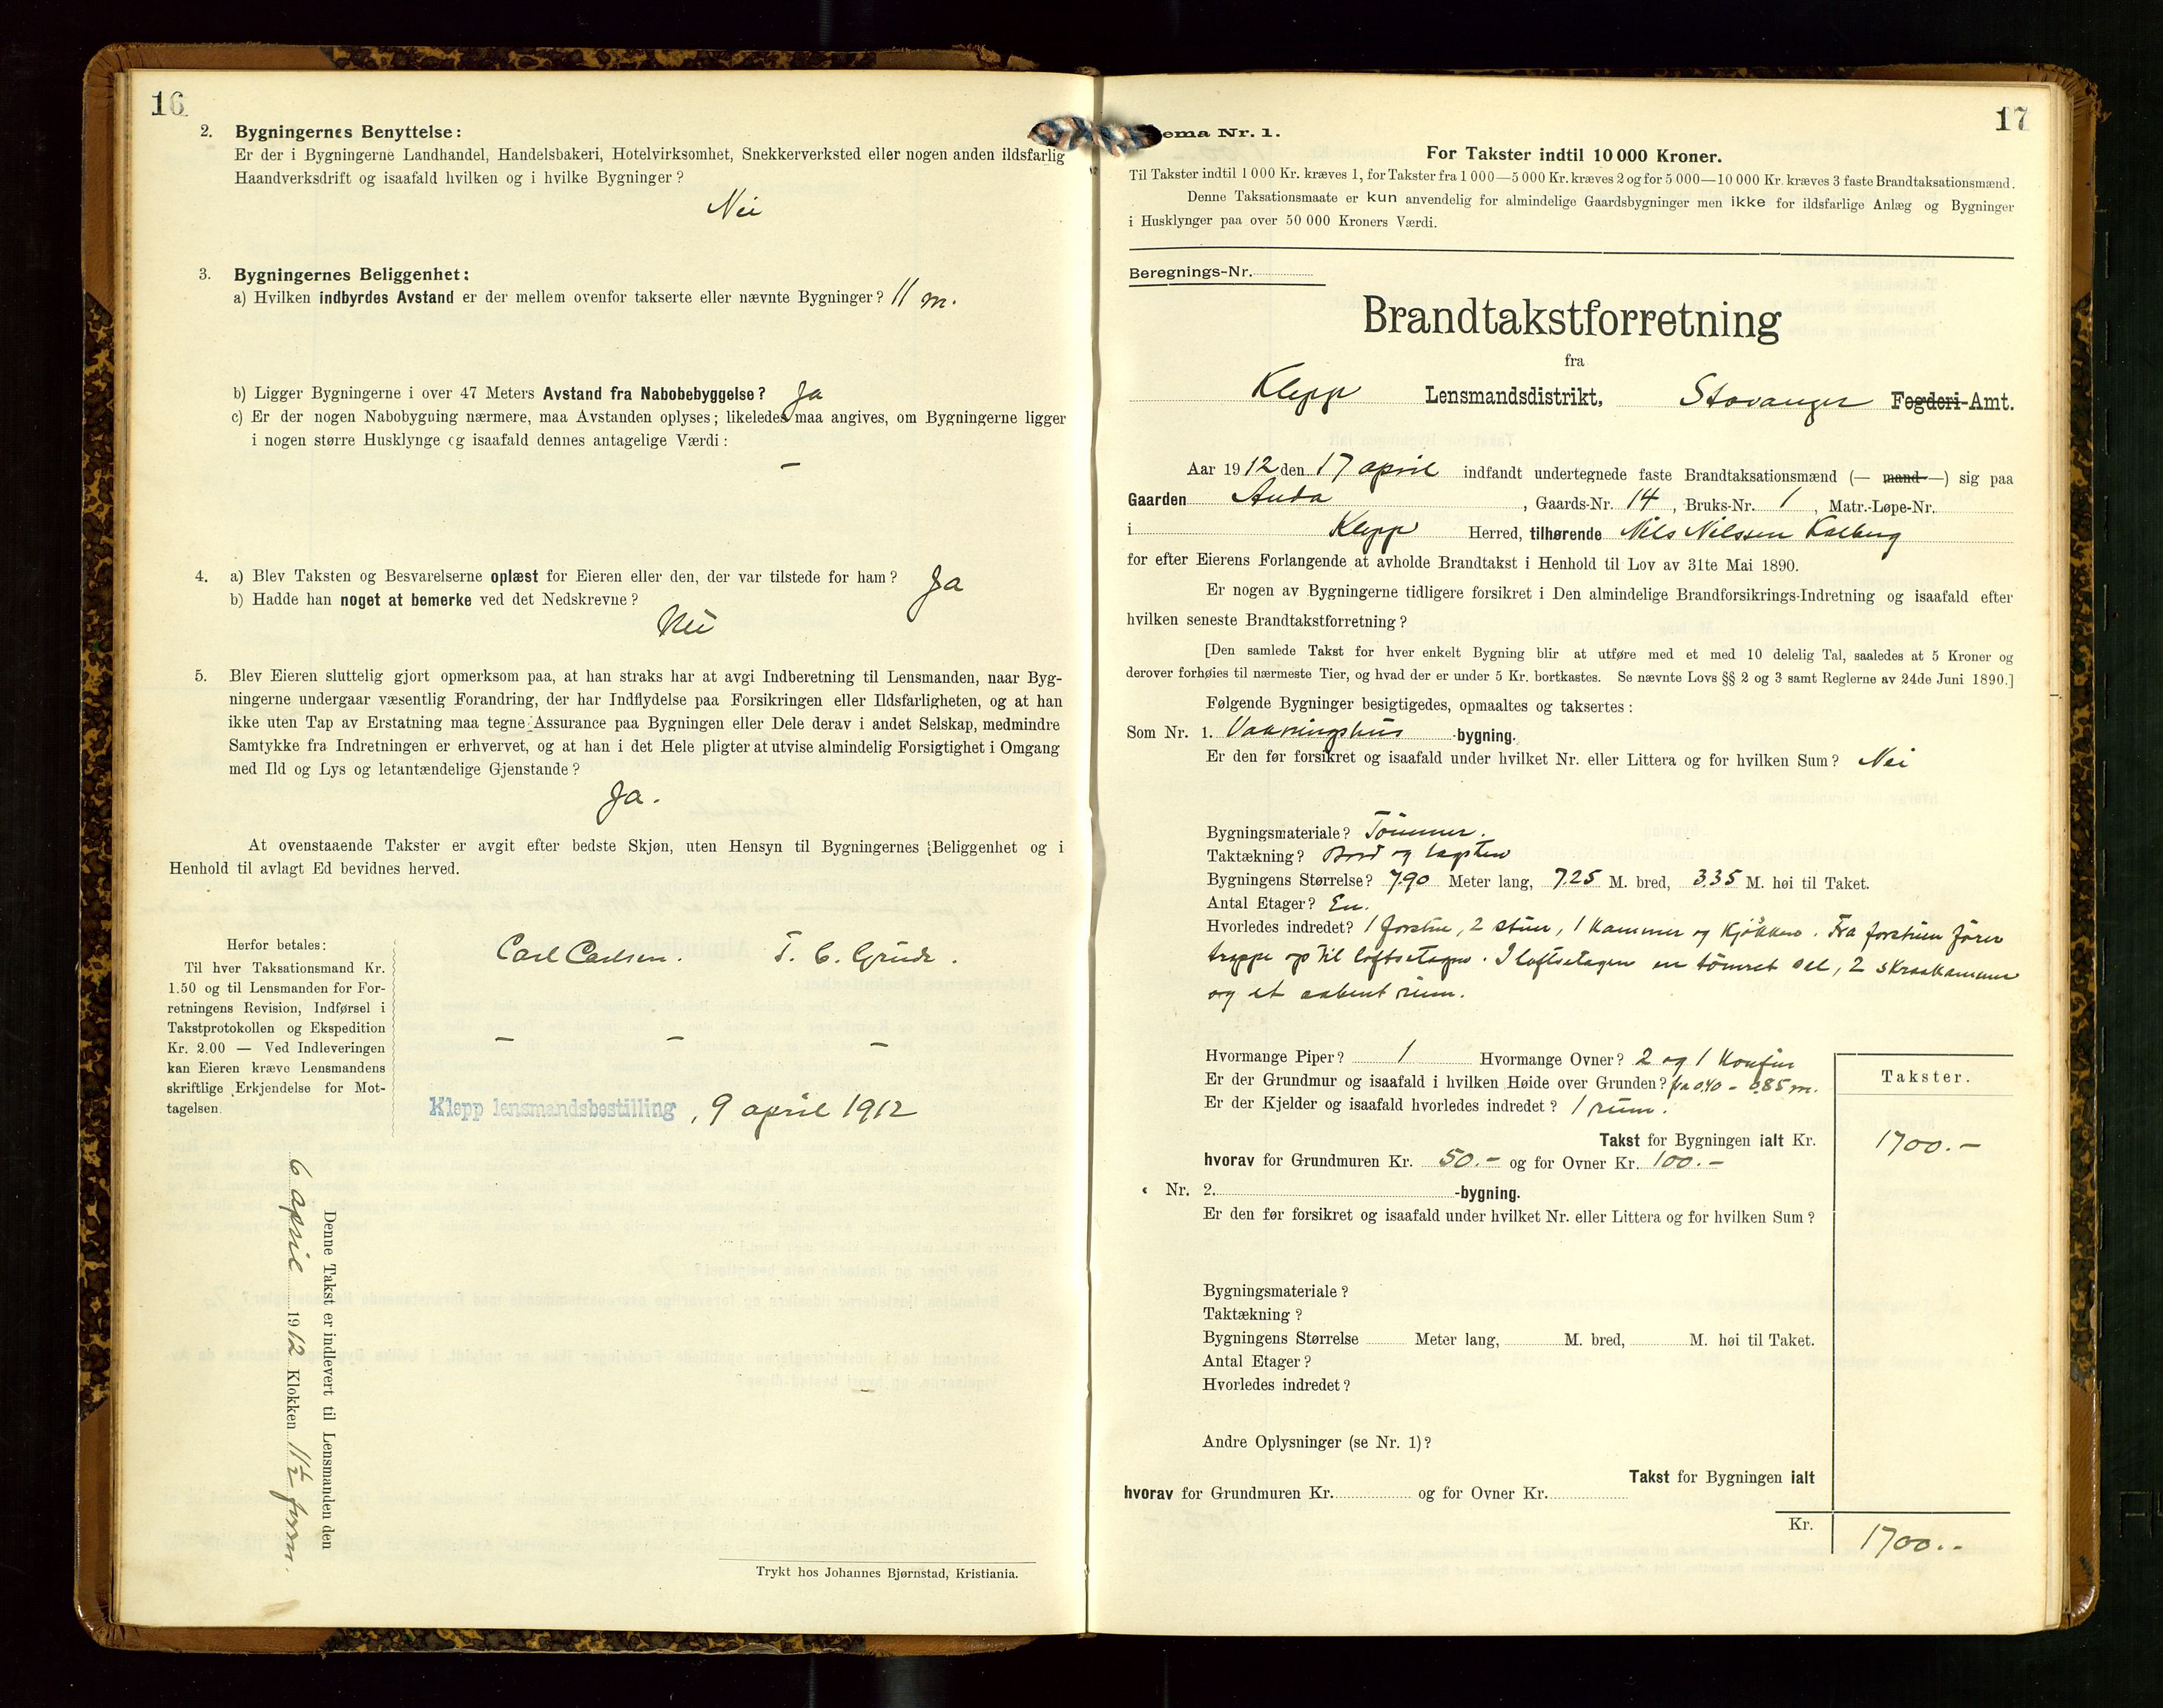 16
2. Bygningernes Benyttelse:
Er der i Bygningerne Landhandel, Handelsbakeri, Hotelvirksomhet, Snekkerverksted eller nogen anden ildsfarlig
Haandverksdrift og isaafald hvilken og i hvilke Bygninger?
Nei
3. Bygningernes Beliggenhet:
a) Hvilken indbyrdes Avstand er der mellem ovenfor takserte eller nævnte Bygninger? 11 m.
b) Ligger Bygningerne i over 47 Meters Avstand fra Nabobebyggelse? Ja
c) Er der nogen Nabobygning nærmere, maa Avstanden oplyses; likeledes maa angives, om Bygningerne ligger
i nogen større Husklynge og isaafald dennes antagelige Værdi:
–
4. a) Blev Taksten og Besvarelserne oplæst for Eieren eller den, der var tilstede for ham? Ja
b) Hadde han noget at bemerke ved det Nedskrevne?
Nei
5. Blev Eieren sluttelig gjort opmerksom paa, at han straks har at avgi Indberetning til Lensmanden, naar Byg-
ningerne undergaar væsentlig Forandring, der har Indflydelse paa Forsikringen eller Ildsfarligheten, og at han
ikke uten Tap av Erstatning maa tegne Assurance paa Bygningen eller Dele derav i andet Selskap, medmindre
Samtykke fra Indretningen er erhvervet, og at han i det Hele pligter at utvise almindelig Forsigtighet i Omgang
med Ild og Lys og letantændelige Gjenstande?
Ja.
At ovenstaaende Takster er avgit efter bedste Skjøn, uten Hensyn til Bygningernes Beliggenhet og i
Henhold til avlagt Ed bevidnes herved.
Herfor betales:
Til hver Taksationsmand Kr.
1.50 og til Lensmanden for For-
retningens Revision, Indførsel i
Takstprotokollen og Ekspedition
Kr. 2.00 — Ved Indleveringen
kan Eieren kræve Lensmandens
skriftlige Erkjendelse for Mot-
tagelsen.
Carl Carlsen. T. C. Grude.
– – –
Klepp lensmandsbestilling, 9 april 1912
Denne Takst er indlevert til Lensmanden den
6 april 1912 Klokken 11½ form.
Trykt hos Johannes Bjørnstad, Kristiania.
17
ema Nr. 1.
For Takster indtil 10 000 Kroner.
Til Takster indtil 1 000 Kr. kræves 1, for Takster fra 1 000—5 000 Kr. kræves 2 og for 5 000—10 000 Kr. kræves 3 faste Brandtaksationsmænd.
Denne Taksationsmaate er kun anvendelig for almindelige Gaardsbygninger men ikke for ildsfarlige Anlæg og Bygninger
i Husklynger paa over 50 000 Kroners Værdi.
Beregnings-Nr.
Brandtakstforretning
fra
Klepp Lensmandsdistrikt, Stavanger Fogderi-Amt.
Aar 1912 den 17 april indfandt undertegnede faste Brandtaksationsmænd (— mand —) sig paa
Gaarden Anda, Gaards-Nr. 14, Bruks-Nr. 1, Matr.-Løpe-Nr.
i Klepp Herred, tilhørende Nils Nilssen Kalberg
for efter Eierens Forlangende at avholde Brandtakst i Henhold til Lov av 31te Mai 1890.
Er nogen av Bygningerne tidligere forsikret i Den almindelige Brandforsikrings-Indretning og isaafald efter
hvilken seneste Brandtakstforretning?
[Den samlede Takst for hver enkelt Bygning blir at utføre med et med 10 delelig Tal, saaledes at 5 Kroner og
derover forhøies til nærmeste Tier, og hvad der er under 5 Kr. bortkastes. Se nævnte Lovs §§ 2 og 3 samt Reglerne av 24de Juni 1890.]
Følgende Bygninger besigtigedes, opmaaltes og taksertes:
Som Nr. 1. Vaaningshus -bygning.
Er den før forsikret og isaafald under hvilket Nr. eller Littera og for hvilken Sum? Nei
Bygningsmateriale? Tömmer.
Taktækning? Bord og tagsten
Bygningens Størrelse? 7.90 Meter lang, 7.25 M. bred, 3.35 M. høi til Taket.
Antal Etager? En.
Hvorledes indredet? 1 forstue, 2 stuer, 1 kammer og kjökken. Fra forstuen förer
trappe op til loftsetagen. I loftsetagen en tömret sal, 2 skraakammer
og et aabent rum.
Hvormange Piper? 1 Hvormange Ovner? 2 og 1 Komfur
Er der Grundmur og isaafald i hvilken Høide over Grunden? fra 0.40 - 0.85 m.
Er der Kjelder og isaafald hvorledes indredet? 1 rum.
Takster.
Takst for Bygningen ialt Kr. 1700.-
hvorav for Grundmuren Kr. 50.- og for Ovner Kr. 100.-
Nr. 2. -bygning.
Er den før forsikret og isaafald under hvilket Nr. eller Littera og for hvilken Sum?
Bygningsmateriale?
Taktækning?
Bygningens Størrelse Meter lang, M. bred, M. høi til Taket.
Antal Etager?
Hvorledes indredet?
Andre Oplysninger (se Nr. 1)?
Takst for Bygningen ialt
hvorav for Grundmuren Kr. og for Ovner Kr.
Kr. 1700.-